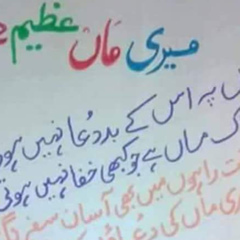 میری ماں عظیم
پہ اس کے بد دعا نہیں ہو
ماں ہے جو کبھی خفا نہیں ہوتی
راہوں میں بھی آسان سفر
ری ماں کی دعا